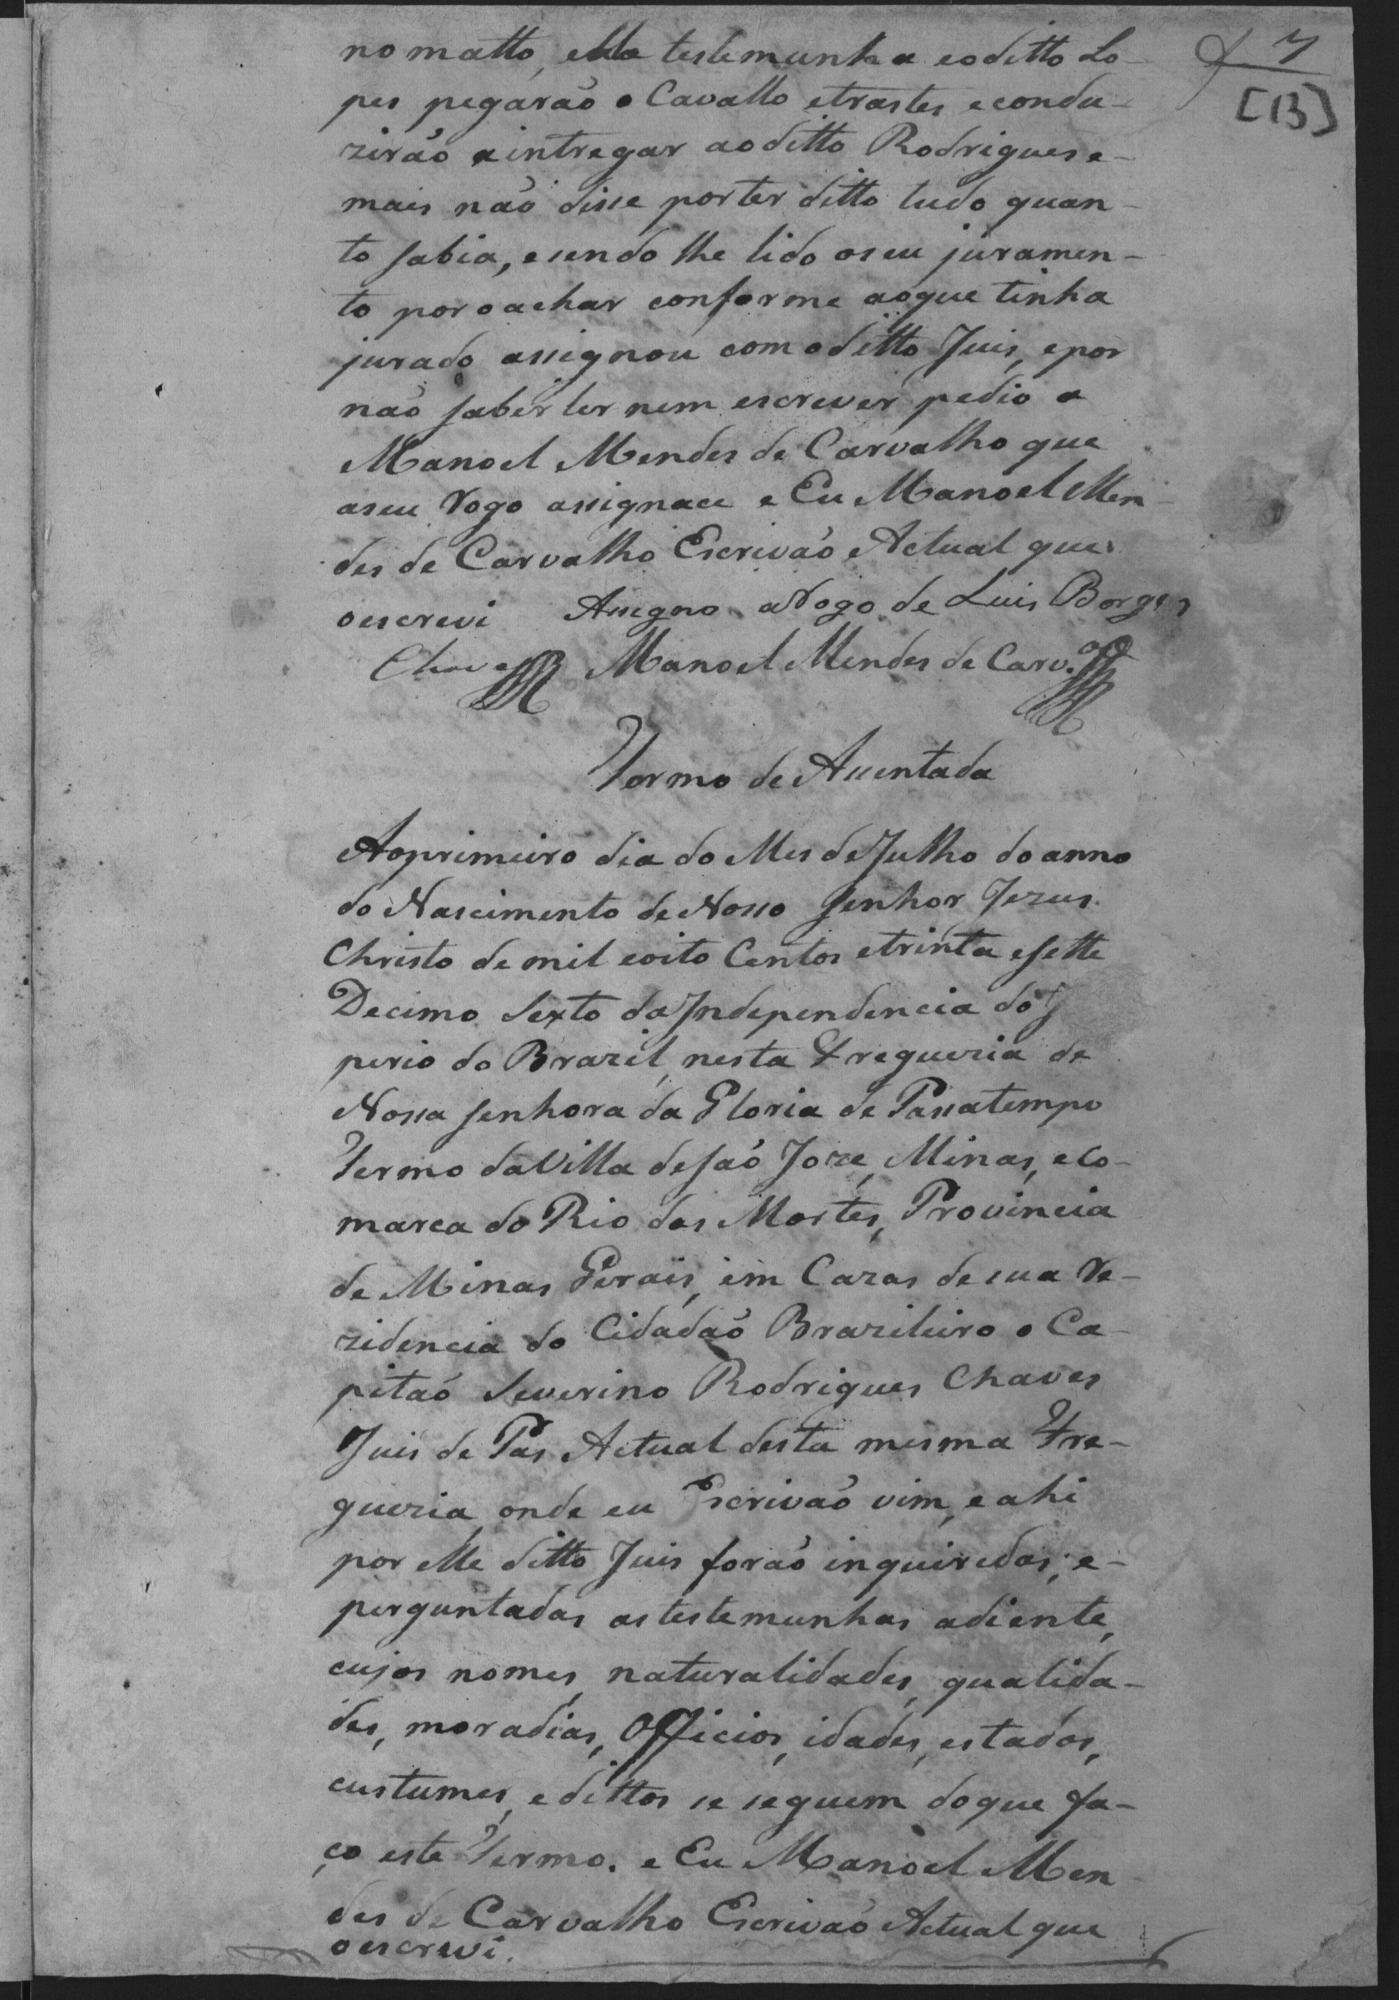 7
[13]
no matto, elle testemunha eoditto Lo-
pes pegarão o Cavallo etrastes econdu-
zirão a intregar aoditto Rodrigues e-
mais não disse porter ditto tudo quan-
to sabia, esendo lhe lido oseu juramen-
to poroachar conforme aoque tinha
jurado assignou com oditto Juis, epor
não saber ler nem escrever pedio a
Manoel Mendes de Carvalho que
aseu Rogo assignace e Eu Manoel Men-
des de Carvalho Escrivão Actual que
oescrevi Assegno aRogo de Luis Borges
Chaves Manoel Mendes de Carv.º
Termo de Assentada
Aoprimeiro dia do Mes deJulho do anno
do Nascimento de Nosso Senhor Jezus
Christo de mil eoito Centos etrinta esette
Decimo Sexto da Independencia do I
perio do Brazil, nesta Freguezia de
Nossa Senhora da Gloria de Passatempo
Termo daVilla deSaõ Joze, Minas, eco-
marca do Rio das Mortes, Provincia
de Minas Gerais, em Cazas de sua Re-
zidencia do Cidadão Brazileiro o Ca-
pitaõ Severino Rodrigues Chaves
Juis de Pas Actual desta mesma Fre-
guezia, onde eu Escrivaõ vim, e ahi
por elle ditto Juis foraõ inquiredas, e-
perguntadas as testemunhas adiente,
cujos nomes, naturalidades, qualida-
des, moradias, Officios, idades, estados,
custumes, e dittos se seguem doque fa-
ço este Termo. e Eu Manoel Men-
des de Carvalho Escrivaõ Actual que
oescrevi.